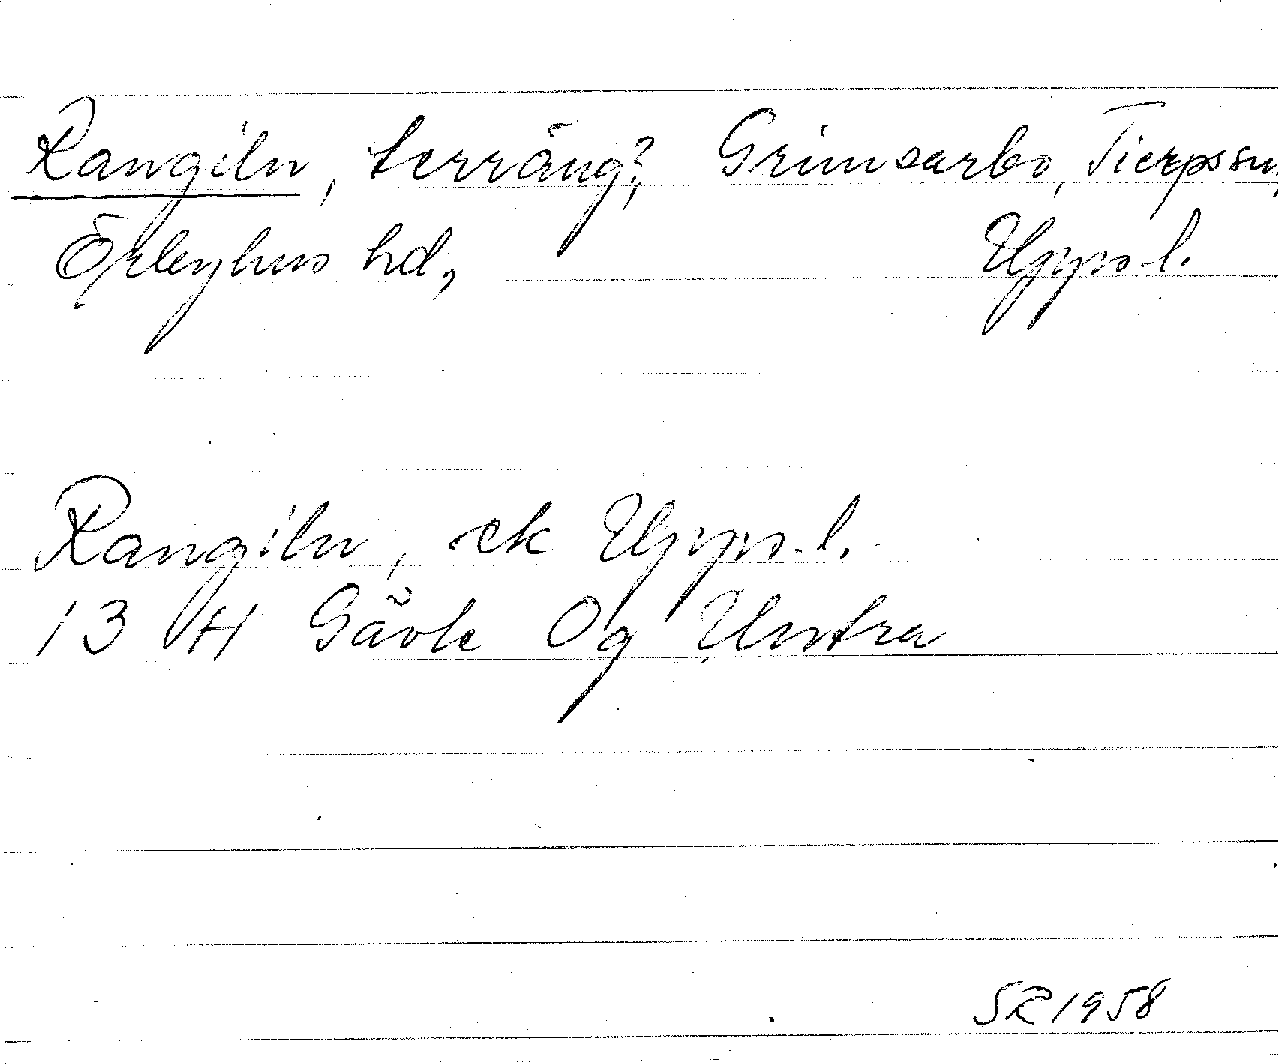 Rangiln, terräng?, Grimsarbo, Tierps sn,
Örbyhus hd, Upps. l.
Rangiln, ek Upps. l.
13 H Gävle Og Ustra
SR 1958